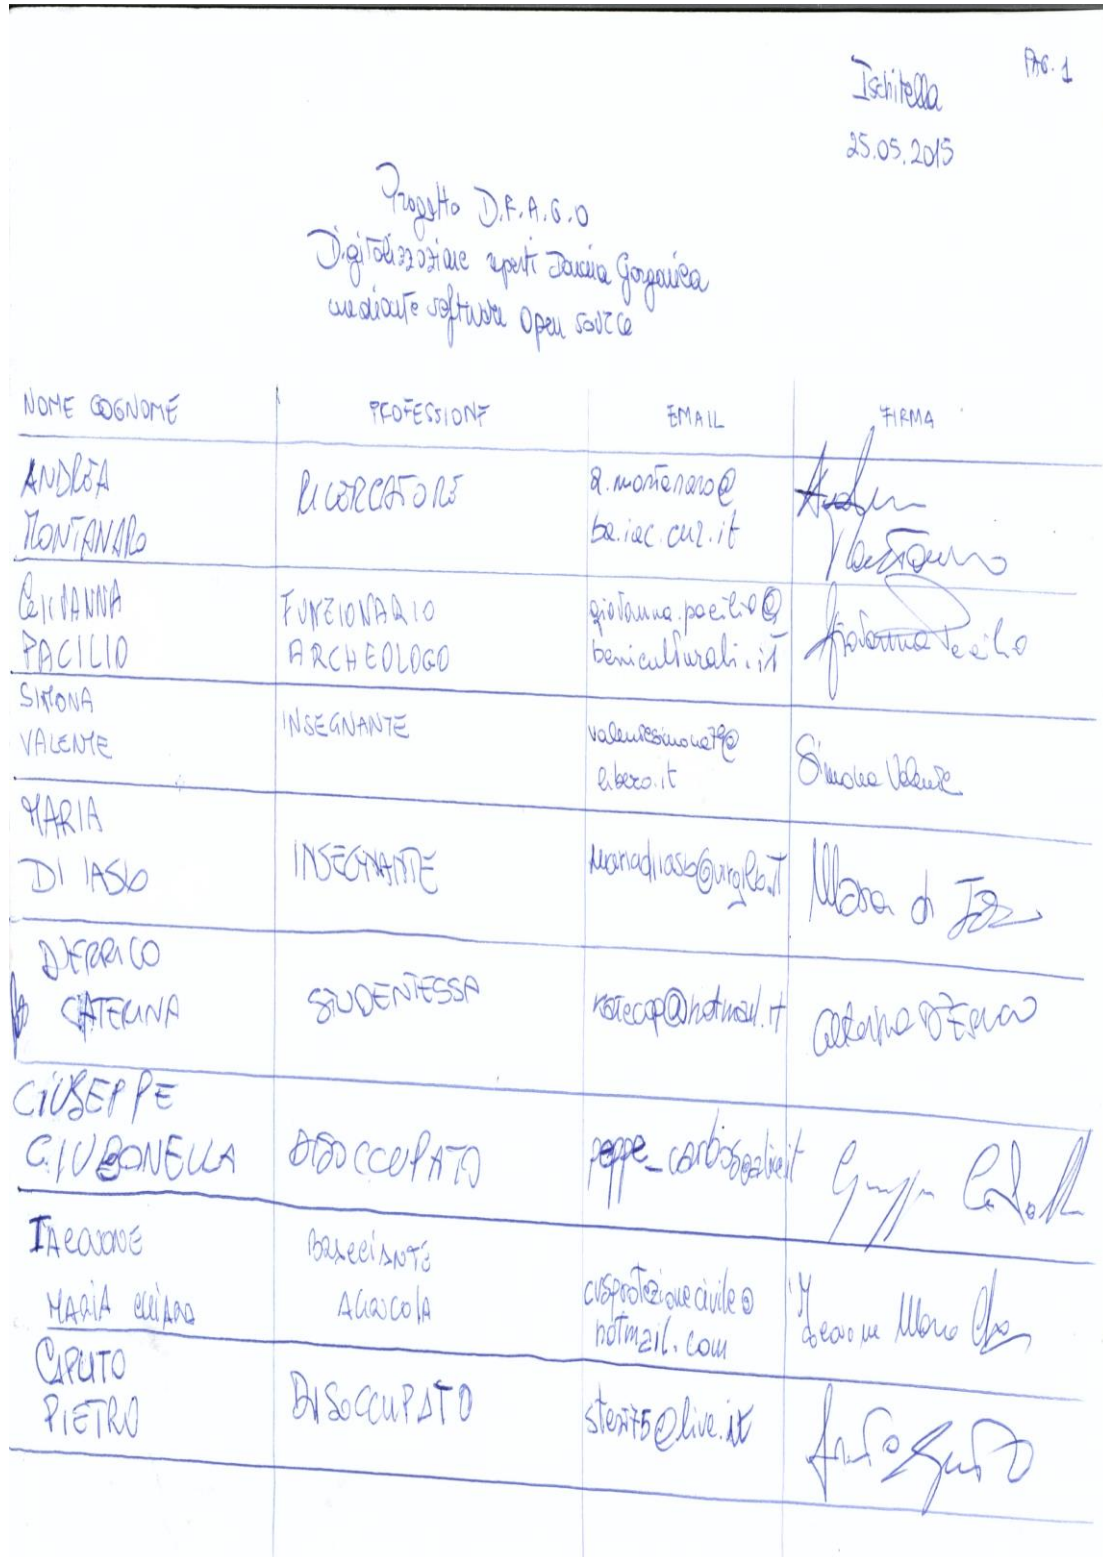 PAG. 1
Ischitella
25.05.2015
Progetto D.F.A.G.O
Digitalizzazione reperti Daunia Garganica
mediante software open source
NOME COGNOME PROFESSIONE EMAIL FIRMA
ANDREA
MONTANARO
RICERCATORE
a.montanaro@
ba.iac.cnr.it
GIOVANNA
PACILIO
FUNZIONARIO
ARCHEOLOGO
giovanna.pacilio@
beniculturali.it
Giovanna Pacilio
SIMONA
VALENTE
INSEGNANTE
valentesimona79@
libero.it
Simona Valente
MARIA
DI IASIO
INSEGNANTE
mariadiiasio@virgilio.it
Maria di
D'ERRICO
CATERINA
STUDENTESSA
@hotmail.it
Caterina D'Errico
GIUSEPPE
DISOCCUPATO
IACOVONE
MARIA CHIARA
BRACCIANTE
AGRICOLA
cvsprotezionecivile@
hotmail.com
Iacovone Maria
CAPUTO
PIETRO
DISOCCUPATO
@live.it